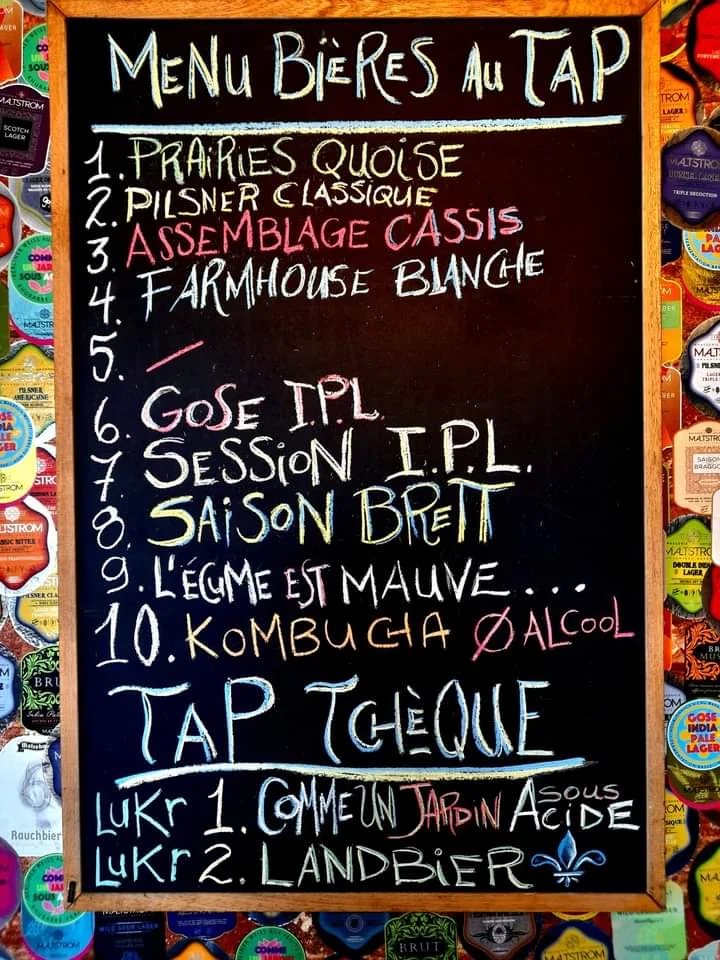 MENU BIÈRES AU TAP
1. PRAIRIES QUOISE
2. PILSNER CLASSIQUE
3. ASSEMBLAGE CASSIS
4. FARMHOUSE BLANCHE
5. /
6. GOSE I.P.L.
7. SESSION I.P.L.
8. SAISON BRETT
9. L'ÉCUME EST MAUVE....
10. KOMBUCHA Ø ALCOOL
TAP TCHÈQUE
LUKr 1. COMME UN JARDIN SOUS ACIDE
LUKr 2. LANDBIER
MALTSTROM
SCOTCH LAGER
MALTSTROM
TRIPLE DECOCTION
PILSNER AMÉRICAINE
DOUBLE INDIA LAGER
GOSE INDIA PALE LAGER
Rauchbier
BRUT